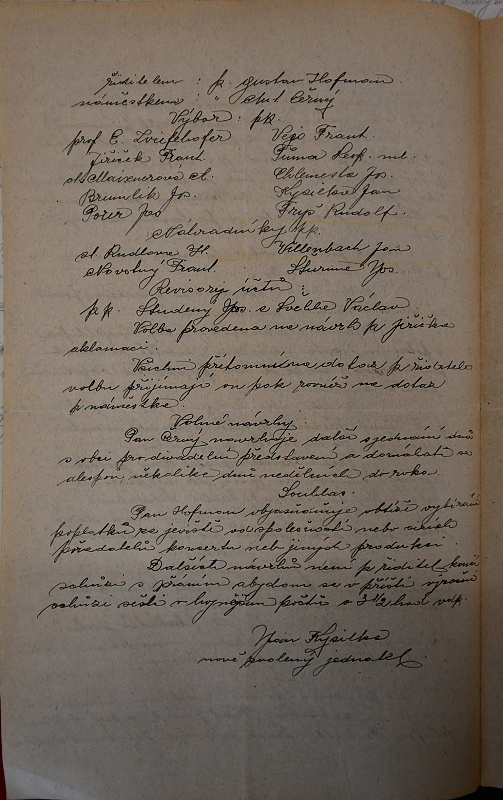 ředitelem : p. Gustav Hofman.
náměstkem : " Ant. Černý
Výbor : pp.
prof. E. Zviefelhofer Vejs Frant.
Jiříček Frant. Tůma Leop. ml.
sl. Maixnerová A. Chlemesta Jos.
Brumlík Jos. Kysilka Jan
Pozer Jos Fryš Rudolf.
Náhradníky pp.
sl. Rudlova H. Villenbach Jan
Novotný Frant. Sturma Jos.
Revisory účtů :
pp. Studený Jos. a Švehla Václav.
Volba provedena na návrh p. Jiříčka
aklamací.
Všichni přítomní na dotaz p. ředitele
volbu přijímají on pak rovněž na dotaz
p. náměstka.
Volné návrhy.
Pan Černý navrhuje další sjednání dnů
s obcí pro divadelní představení a domáhati se
alespoň několika dnů nedělních do roka.
Souhlas.
Pan Hofman objasňuje obtíže vybírání
poplatků za jeviště od společností nebo cizích
pořadatelů koncertu neb jiných produkcí
Dalších návrhů není p. ředitel končí
schůzi s přáním abychom se v příští výroční
schůzi sešli v hojnějším počtu o 3 1/2 hod odp.
Jan Kysilka
nově zvolený jednatel.